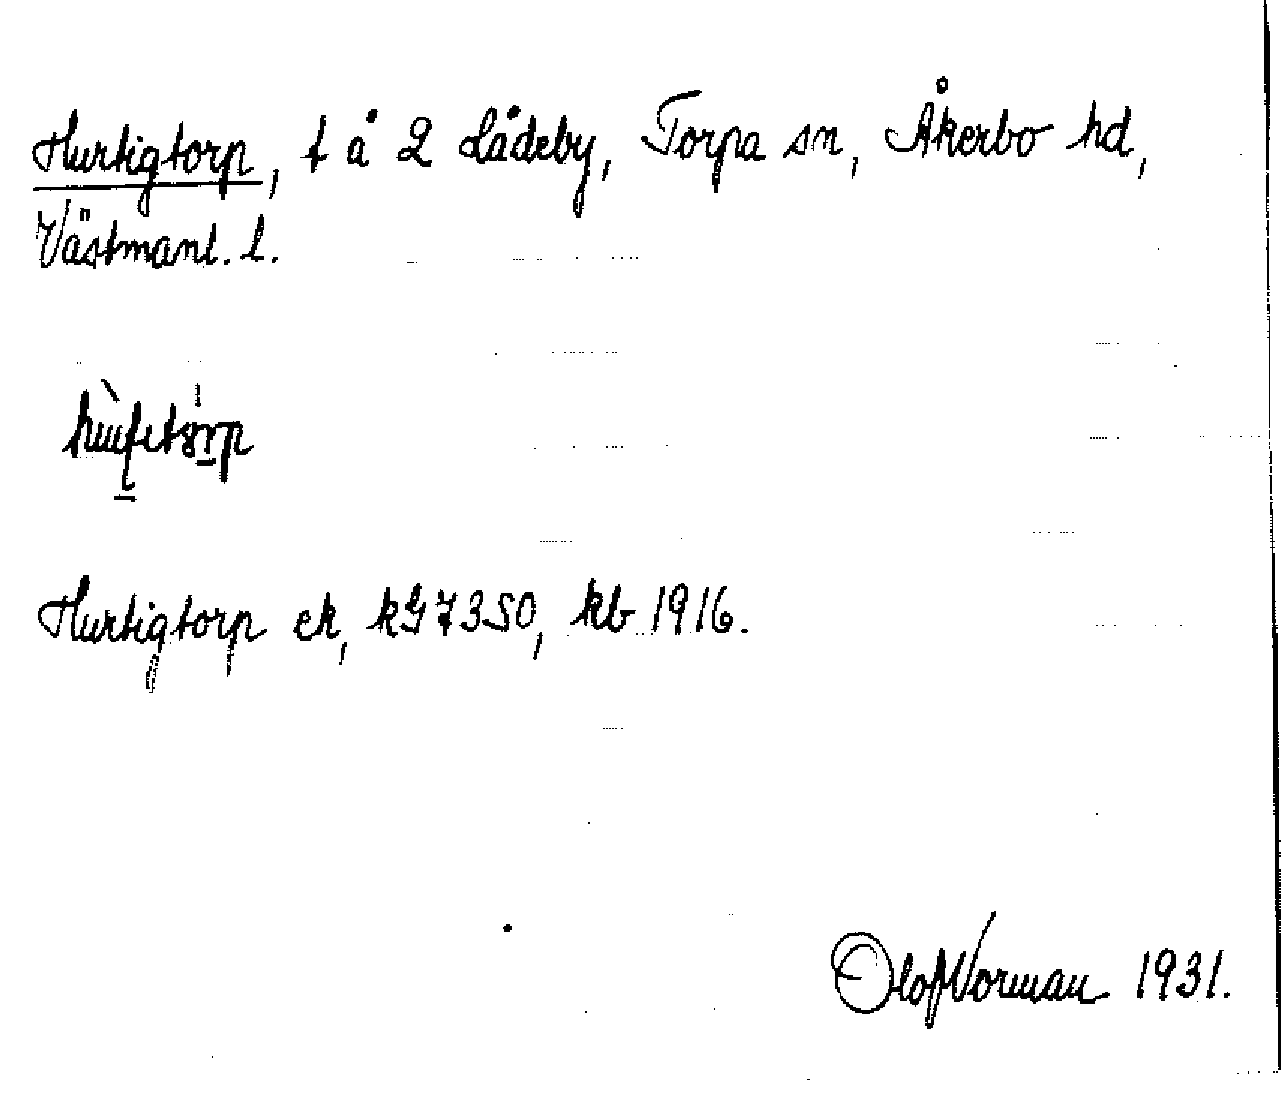 Hurtigtorp, t å 2 Lådeby, Torpa sn, Åkerbo hd,
Västmanl. l.
Hurtigtorp ek, kG 7350, kb 1916.
Olof Norman 1931.